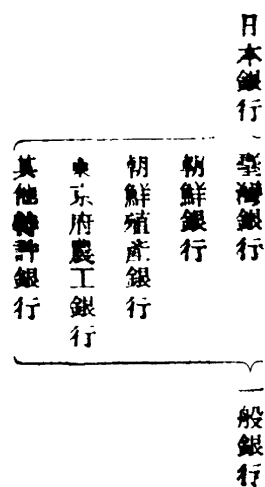 日本銀行
臺灣銀行
朝鮮銀行
朝鮮殖產銀行
東京府農工銀行
其他特許銀行
一般銀行